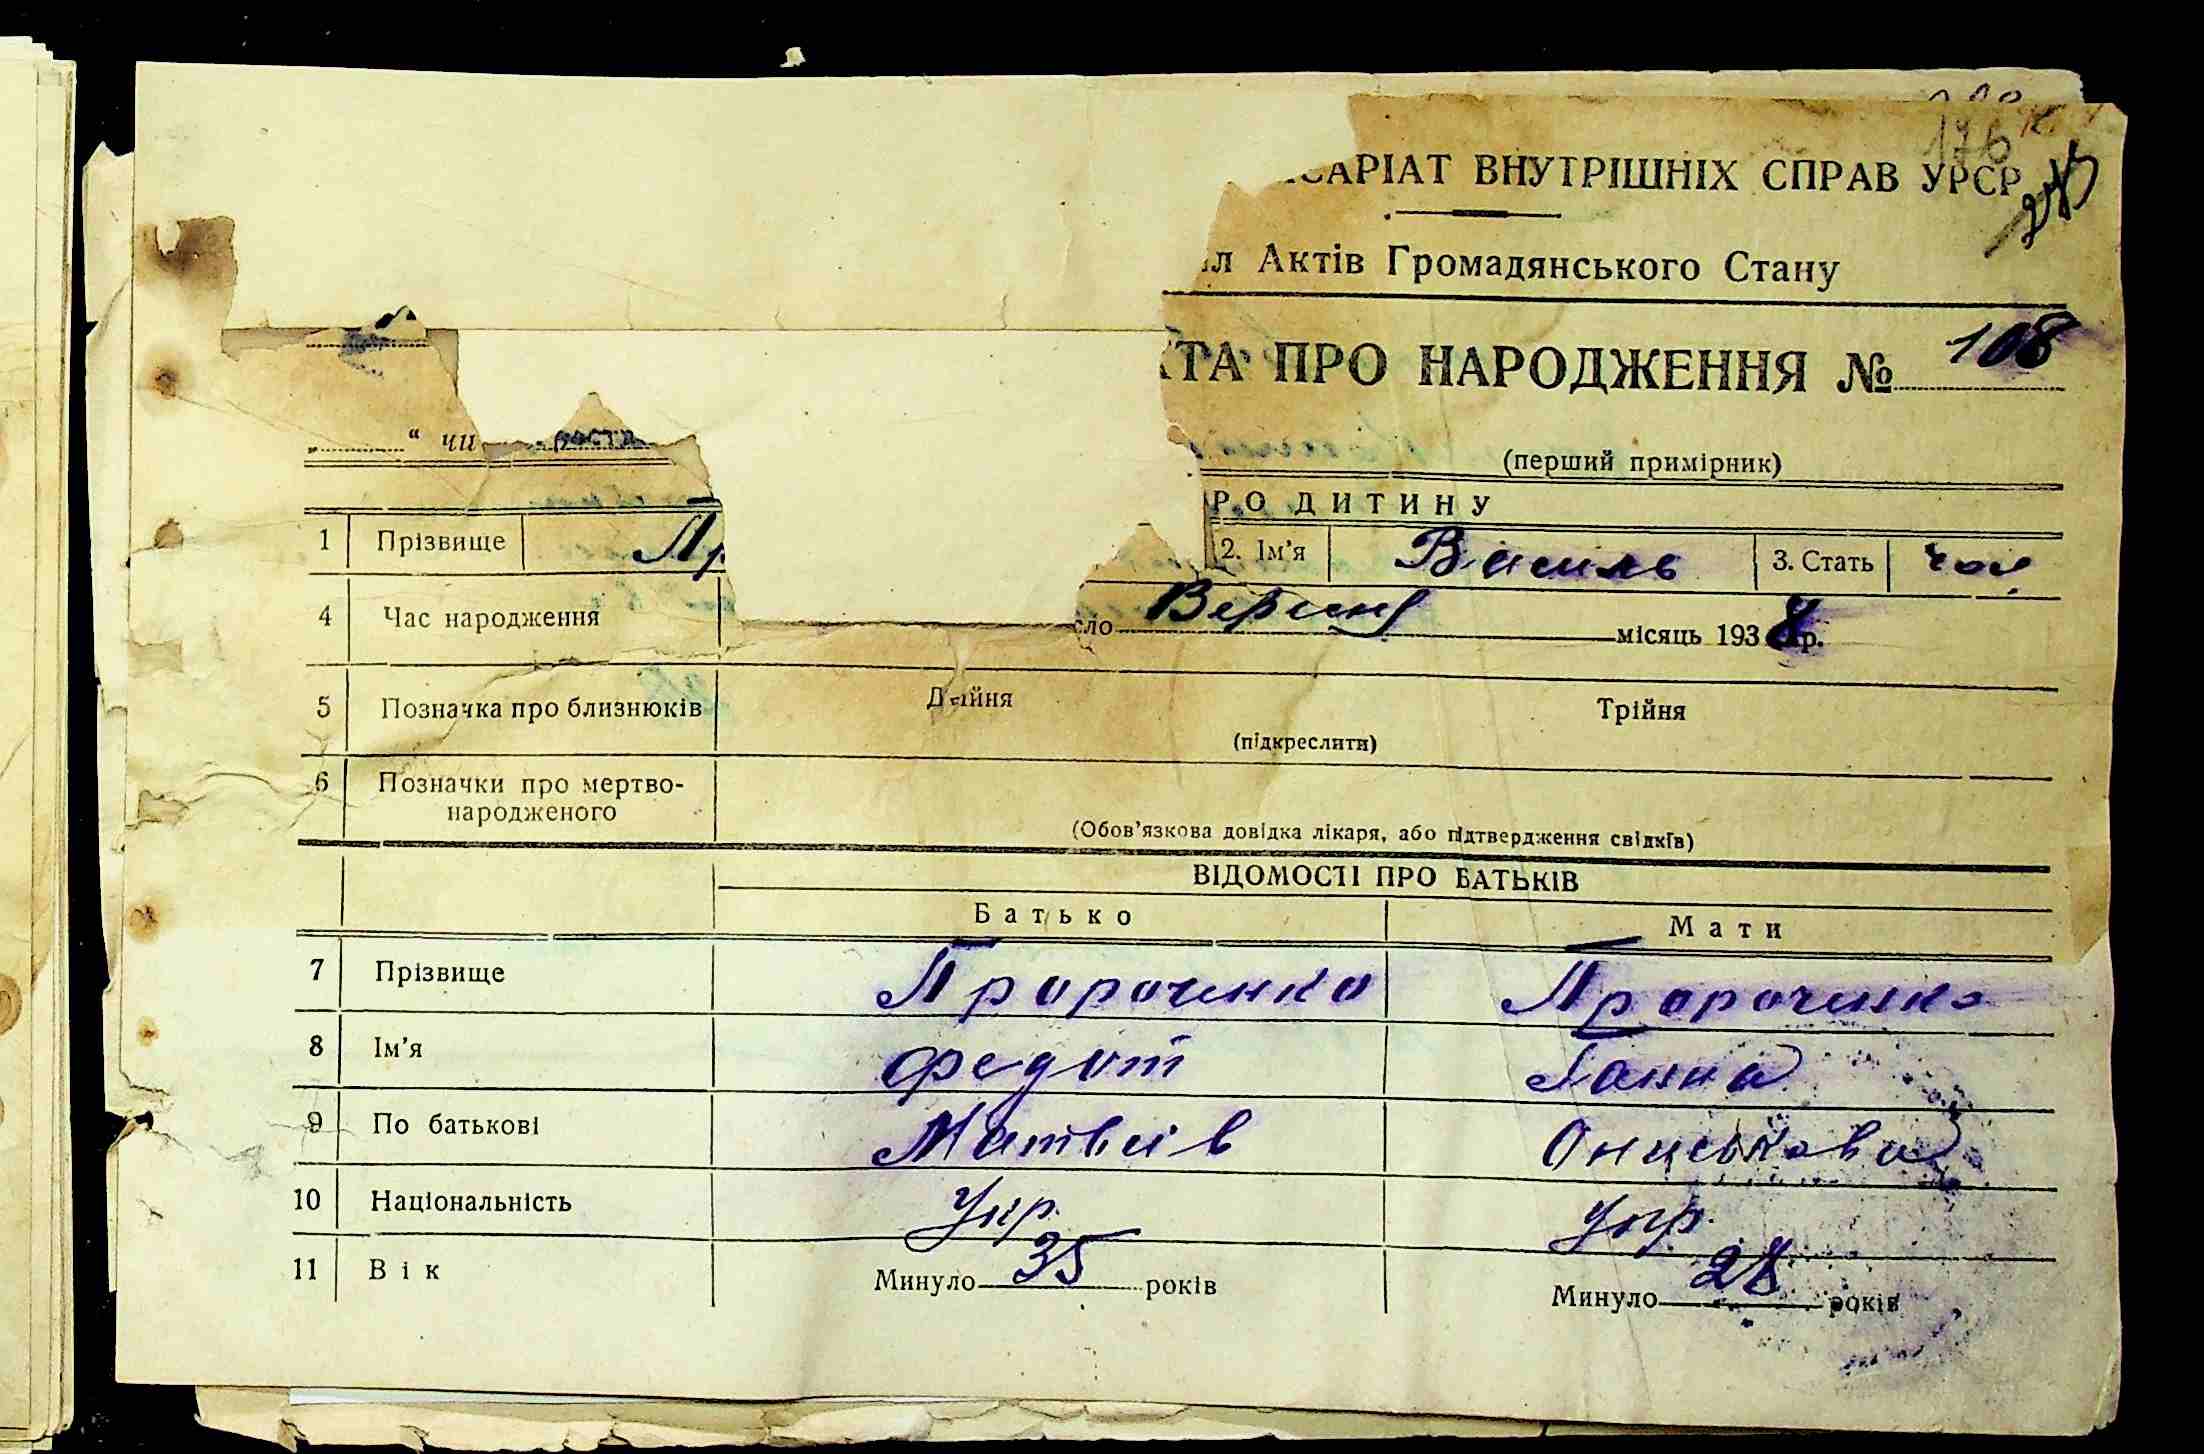 САРІАТ ВНУТРІШНІХ СПРАВ УРСР
176
іл Актів Громадянського Стану
КТА ПРО НАРОДЖЕННЯ № 108
" чи
(перший примірник)
РО ДИТИНУ
1 Прізвище Пр 2. Ім'я Василь 3. Стать чол.
4 Час народження сло Верешня місяць 1938 р.
5 Позначка про близнюків Двійня Трійня
(підкреслити)
6 Позначки про мертво-
народженого
(Обов'язкова довідка лікаря, або підтвердження свідків)
ВІДОМОСТІ ПРО БАТЬКІВ
Батько Мати
7 Прізвище Пророченко Пророченко
8 Ім'я Федот Ганна
9 По батькові Матвіїв Ониськова
10 Національність Укр. Укр.
11 Вік Минуло 35 років Минуло 28 років